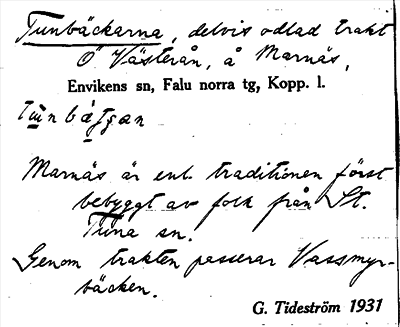 Tunbäckarna, delvis odlad trakt
Ö Västerån, å Marnäs,
Envikens sn, Falu norra tg, Kopp. l.
Marnäs är enl. traditionen först
bebyggt av folk från St.
Tuna sn.
Genom trakten passerar Vassmyr-
bäcken.
G. Tideström 1931